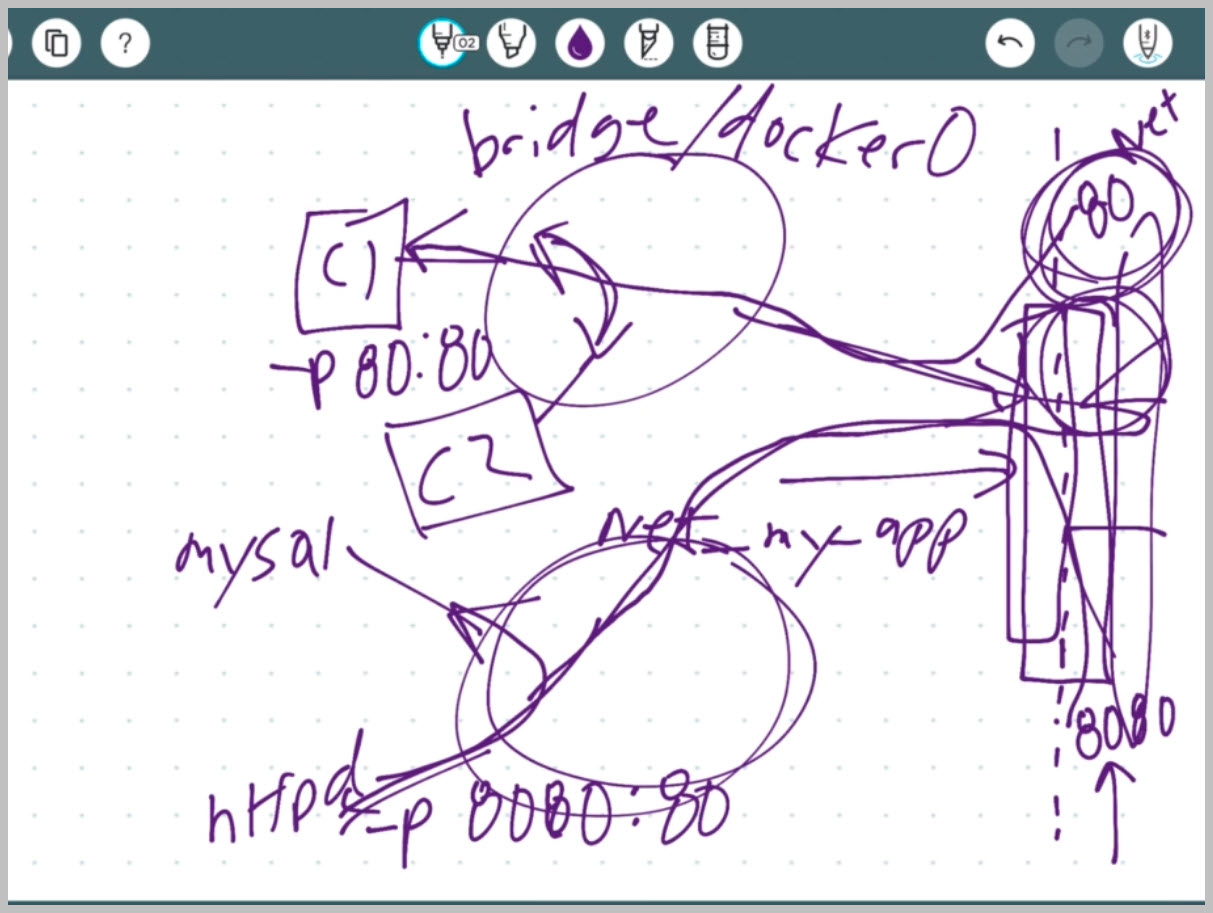 ?
02
bridge/docker0
Net
80
C1
-p 80:80
C2
mysql
Net_my-app
httpd
-p 8080:80
8080